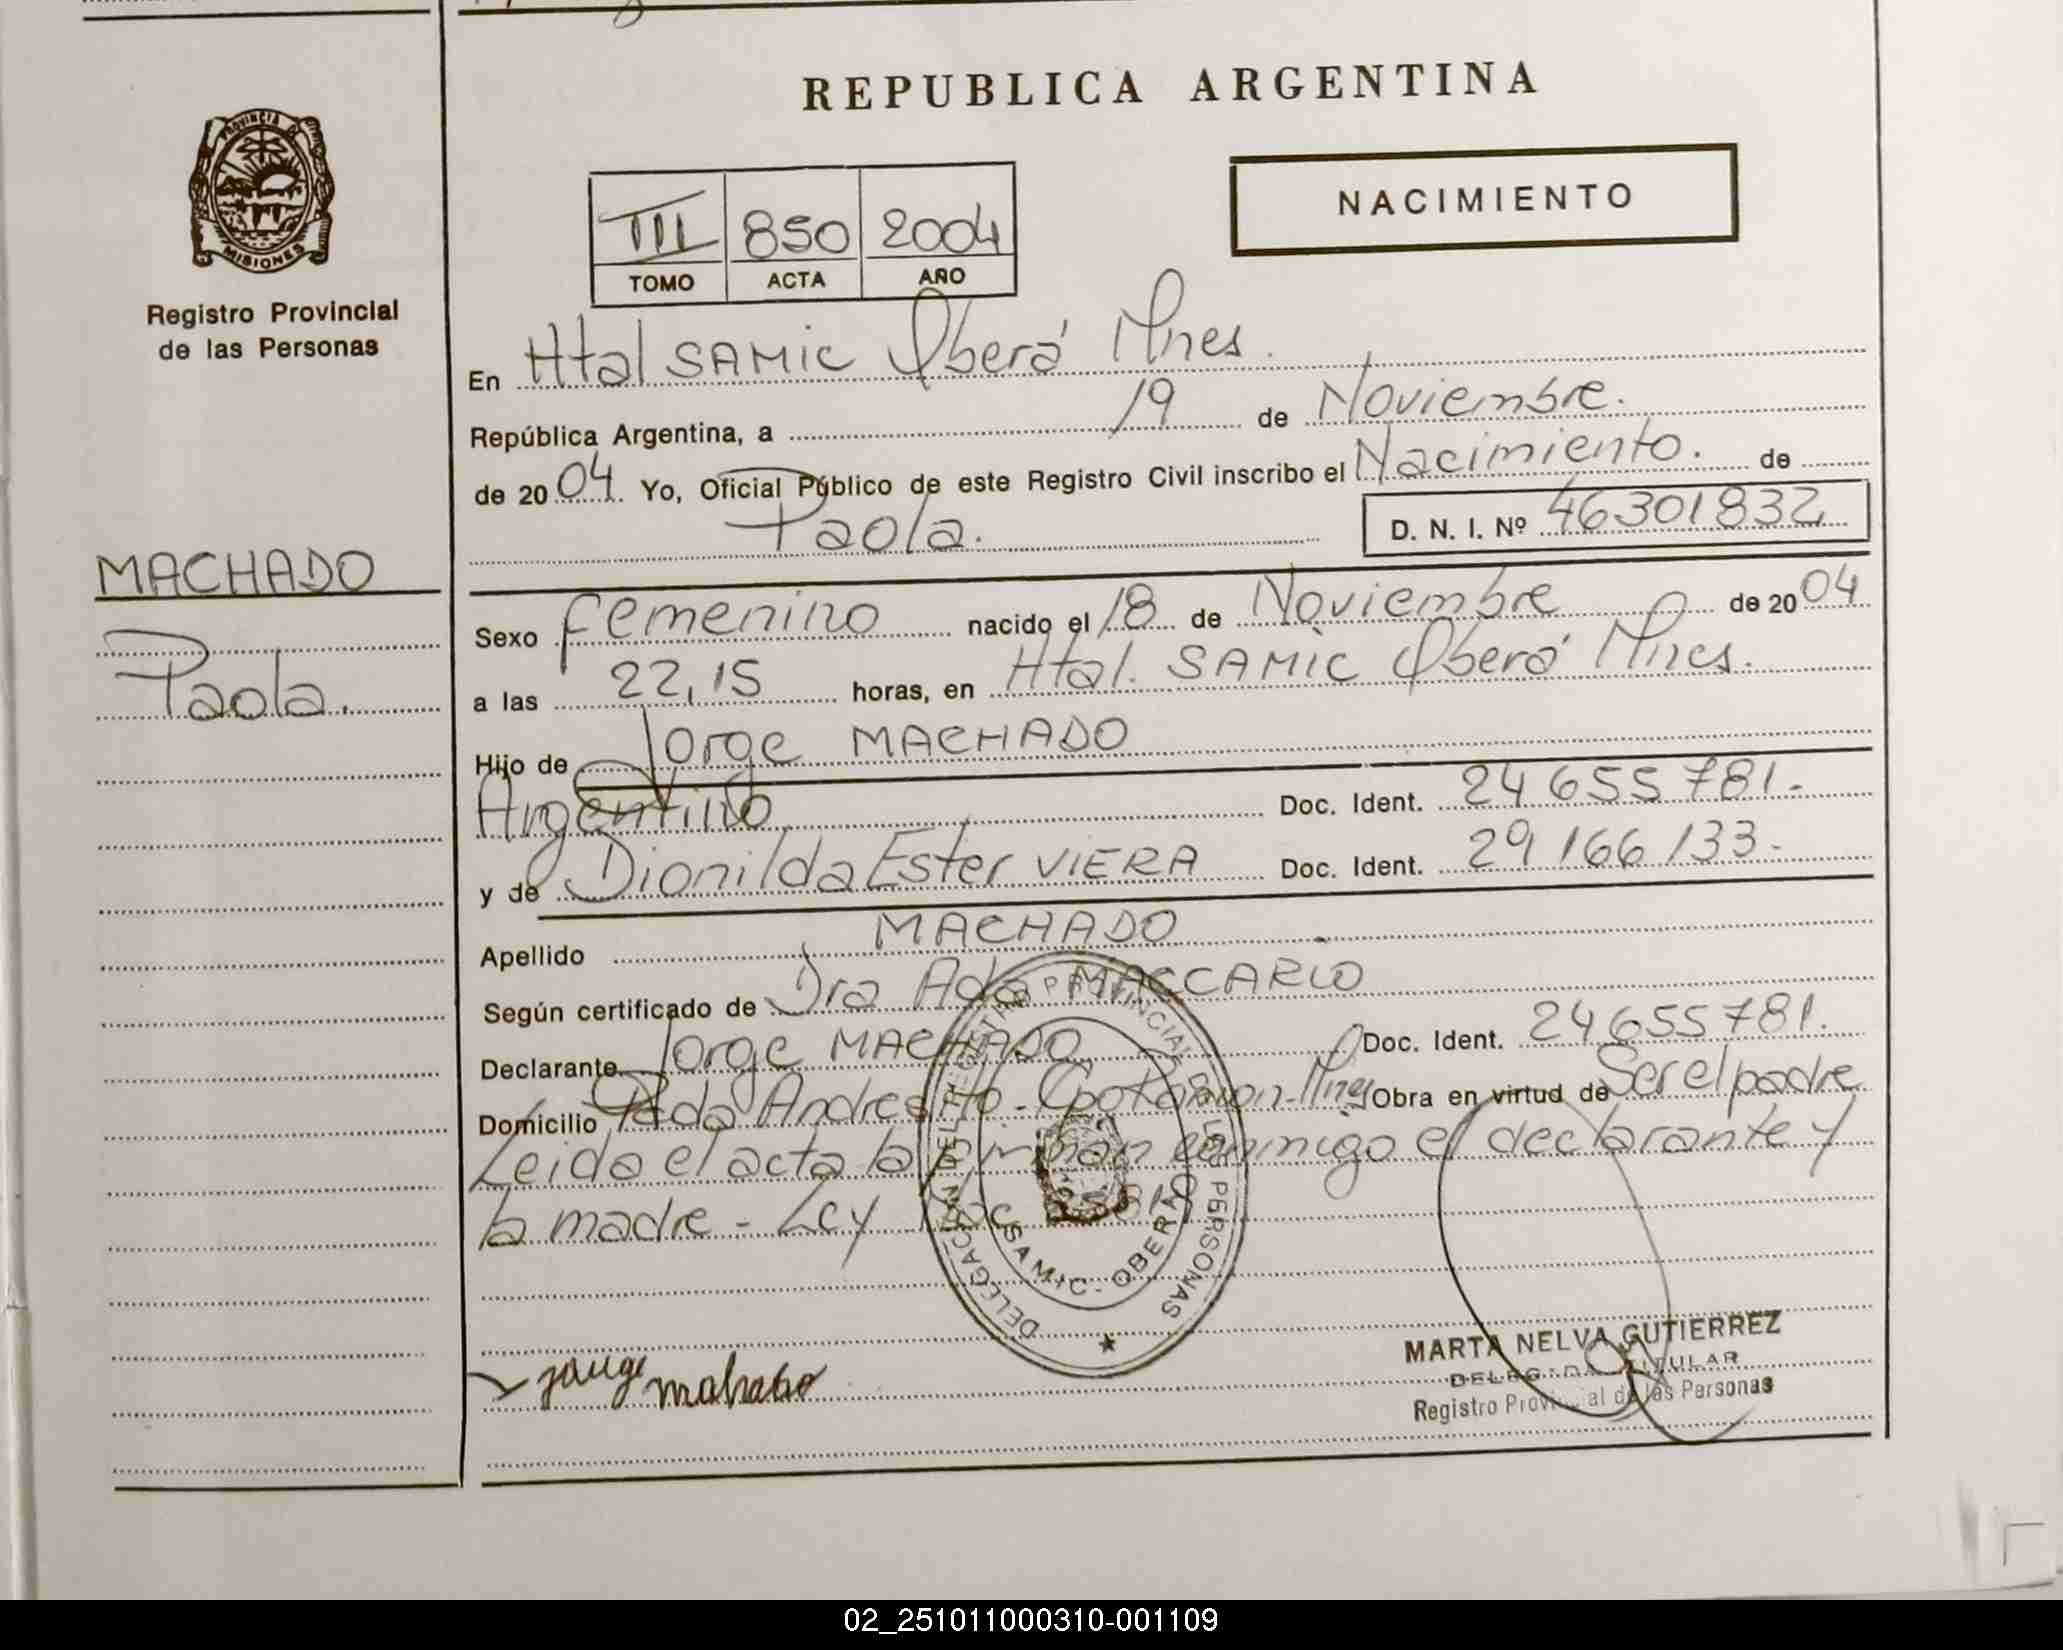 REPUBLICA ARGENTINA
PROVINCIA DE
MISIONES
Registro Provincial
de las Personas
NACIMIENTO
III 850 2004
TOMO ACTA AÑO
En Htal SAMIC Oberá Mnes.
República Argentina, a 19 de Noviembre.
de 2004. Yo, Oficial Público de este Registro Civil inscribo el Nacimiento. de
Paola.
D. N. I. Nº 46301832
MACHADO
Paola.
Sexo Femenino nacido el 18 de Noviembre de 2004
a las 22,15 horas, en Htal. SAMIC Oberá Mnes.
Hijo de Jorge MACHADO
Argentino Doc. Ident. 24655781.-
y de Dionilda Ester VIERA Doc. Ident. 29166133.-
Apellido MACHADO
Según certificado de Dra Ada MACCARIO
Declarante Jorge MACHADO Doc. Ident. 24655781.
Domicilio Pda Andresito - Mnes Obra en virtud de Ser el padre
Leida el acta la firman conmigo el declarante y
la madre - Ley
DELEGACION DEL REGISTRO PROVINCIAL DE LAS PERSONAS
SAMIC - OBERA
MARTA NELVA GUTIERREZ
DELEGADA TITULAR
Registro Provincial de las Personas
02_251011000310-001109